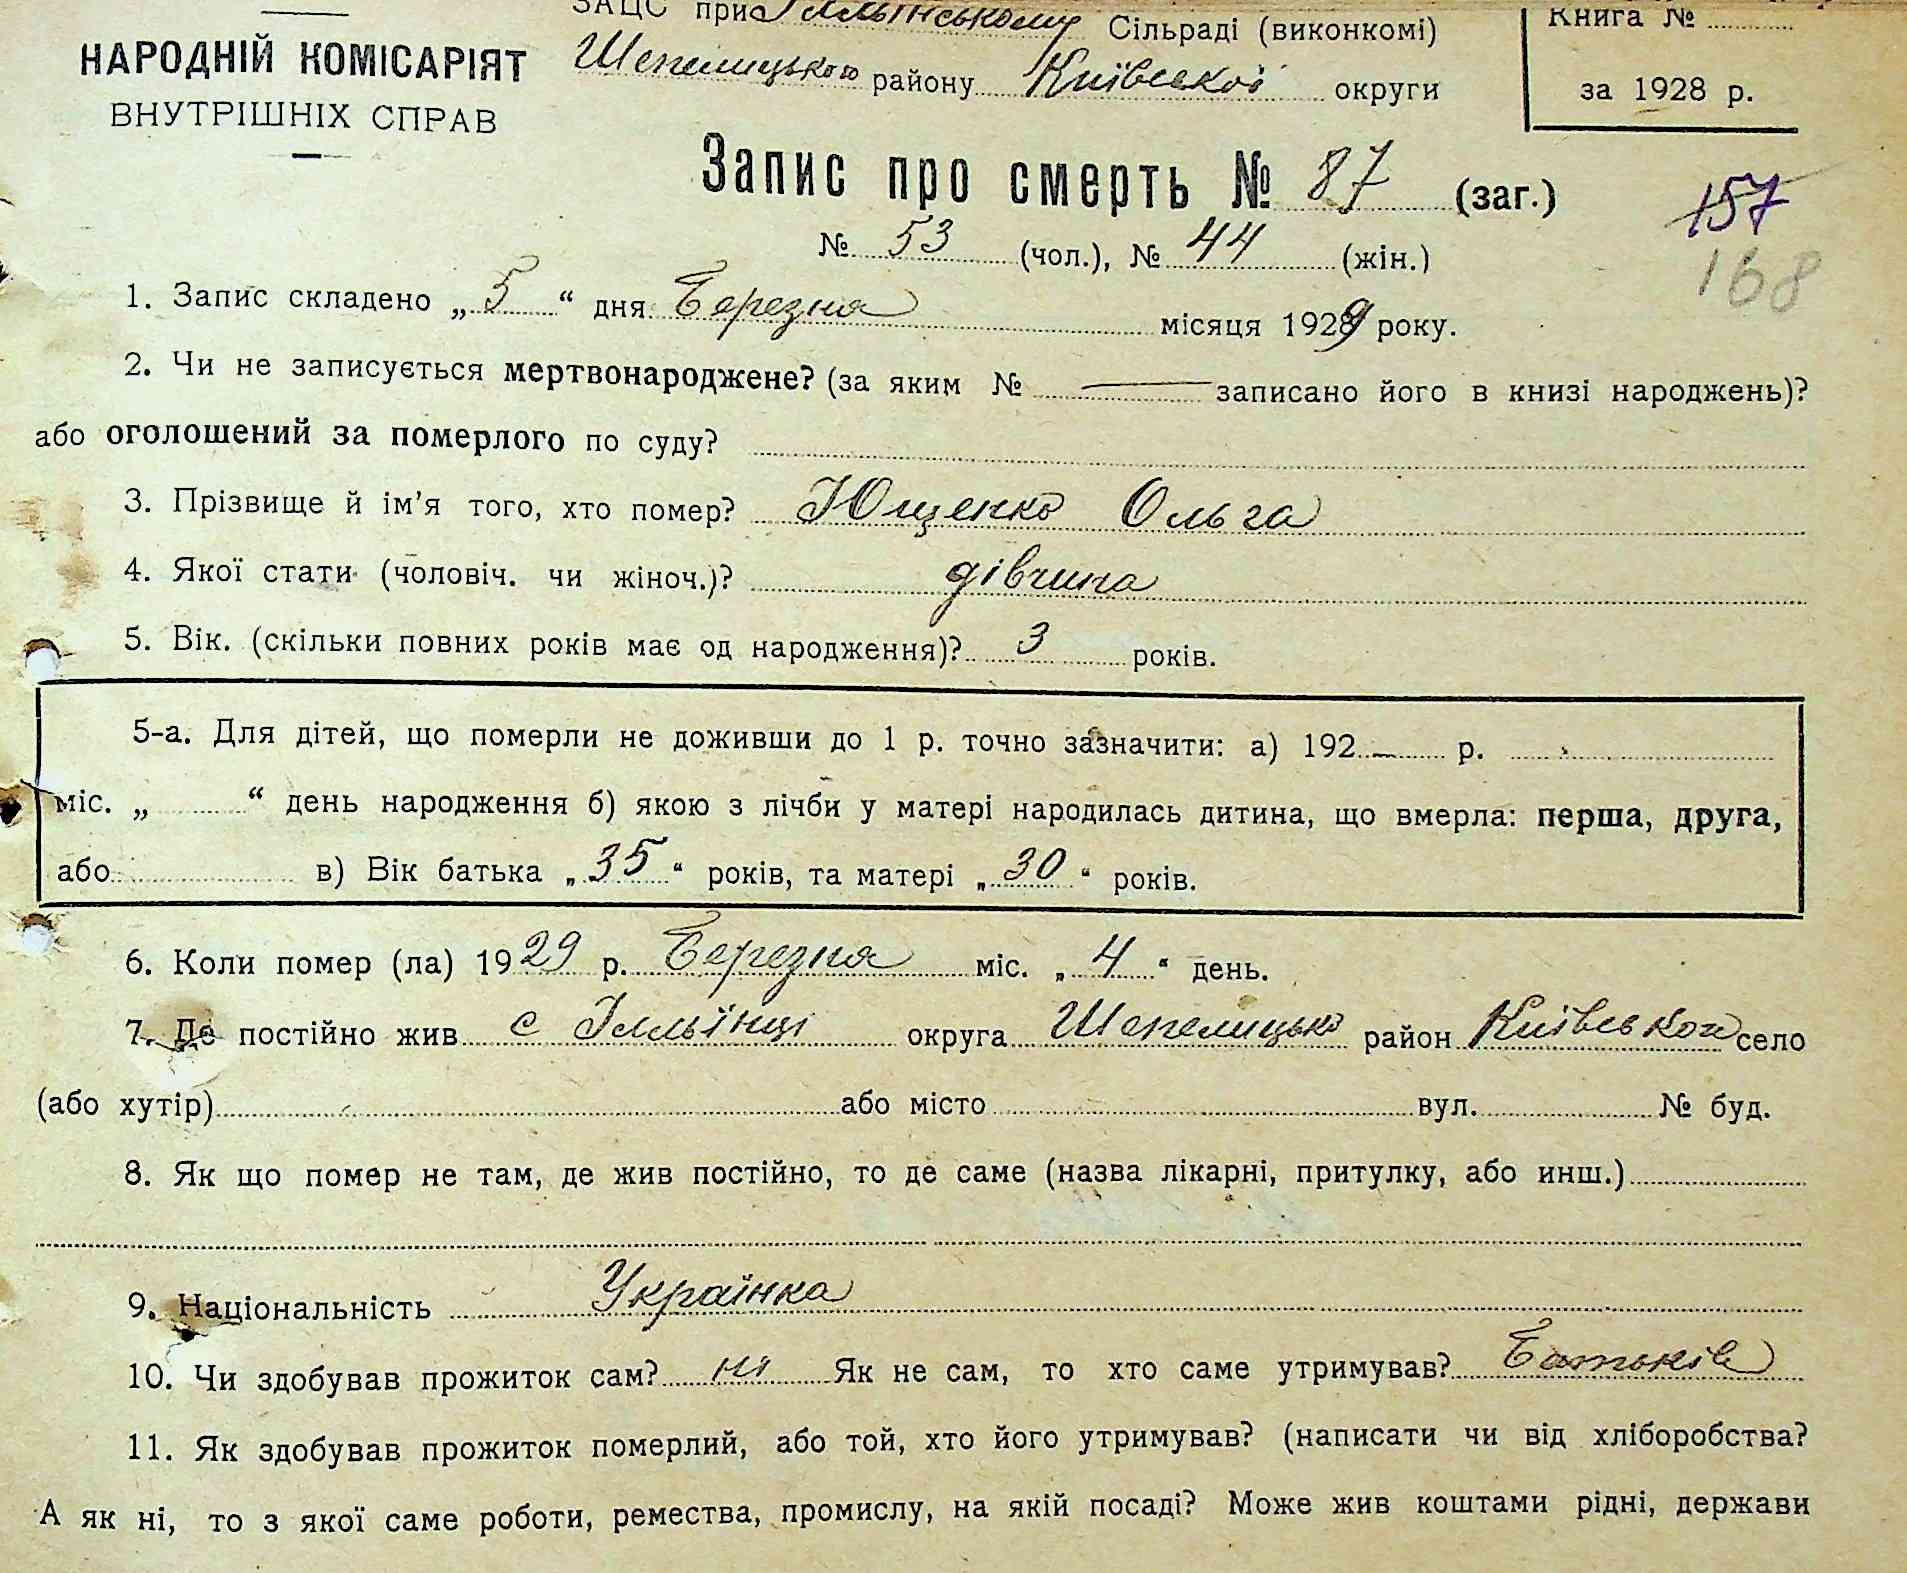 ЗАЦС при Ілльїнському Сільраді (виконкомі)
Шепелицького району Київської округи
Книга №
за 1928 р.
НАРОДНІЙ КОМІСАРІЯТ
ВНУТРІШНІХ СПРАВ
Запис про смерть № 87 (заг.)
№ 53 (чол.), № 44 (жін.)
157
168
1. Запис складено „ 5 “ дня Березня місяця 1929 року.
2. Чи не записується мертвонароджене? (за яким № — записано його в книзі народжень)?
або оголошений за померлого по суду?
3. Прізвище й ім'я того, хто помер? Ющенко Ольга
4. Якої стати (чоловіч. чи жіноч.)? дівчина
5. Вік. (скільки повних років має од народження)? 3 років.
5-а. Для дітей, що померли не доживши до 1 р. точно зазначити: а) 192 — р.
міс. „ “ день народження б) якою з лічби у матері народилась дитина, що вмерла: перша, друга,
або в) Вік батька „ 35 “ років, та матері „ 30 “ років.
6. Коли помер (ла) 1929 р. Березня міс. „ 4 “ день.
7. Де постійно жив с Ілльїнці округа Шепелицько район Київської село
(або хутір) або місто вул. № буд.
8. Як що помер не там, де жив постійно, то де саме (назва лікарні, притулку, або инш.)
9. Національність Українка
10. Чи здобував прожиток сам? ні Як не сам, то хто саме утримував? Батьків
11. Як здобував прожиток померлий, або той, хто його утримував? (написати чи від хліборобства?
А як ні, то з якої саме роботи, ремества, промислу, на якій посаді? Може жив коштами рідні, держави